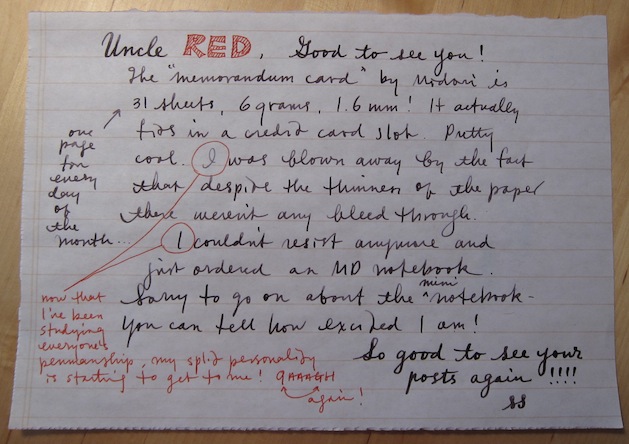 Uncle RED, Good to see you!
The "memorandum card" by Midori is
31 sheets, 6 grams, 1.6 mm! It actually
fits in a credit card slot. Pretty
cool. I was blown away by the fact
that despite the thinness of the paper
there weren't any bleed through.
I couldn't resist anymore and
just ordered an MD notebook.
Sorry to go on about the mini notebook-
You can tell how excited I am!
So good to see your
posts again !!!!
SS
one
page
for
every
day
of
the
month...
now that
I've been
studying
everyone's
penmanship, my split personality
is starting to get to me! gAAAGH
again!